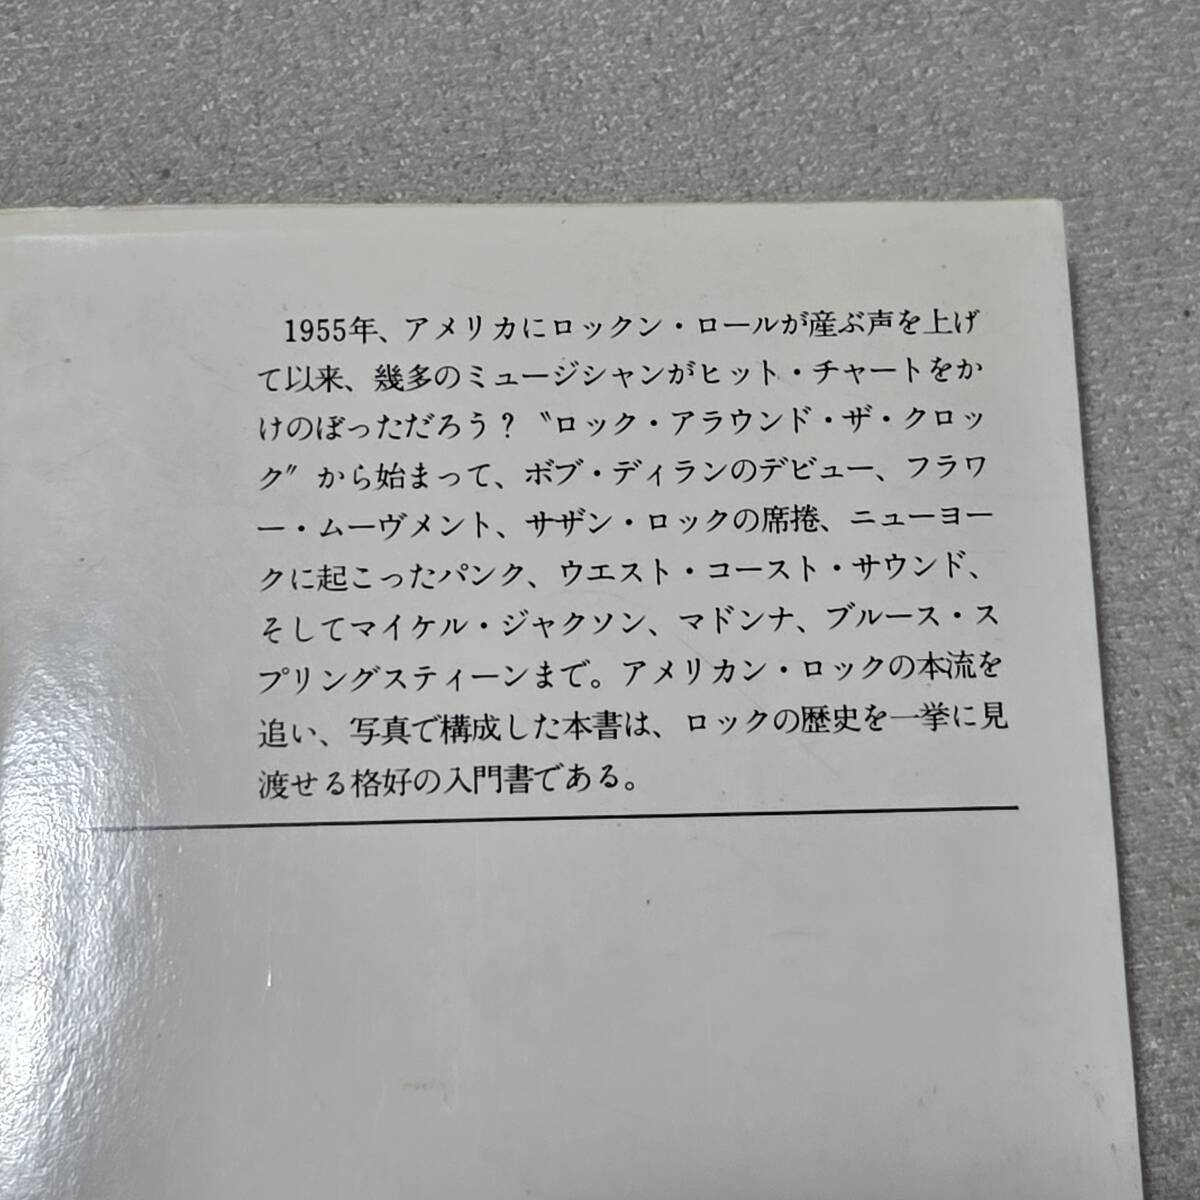 1955年、アメリカにロックン・ロールが産ぶ声を上げ
て以来、幾多のミュージシャンがヒット・チャートをか
けのぼっただろう？〝ロック・アラウンド・ザ・クロッ
ク〟から始まって、ボブ・ディランのデビュー、フラワ
ー・ムーヴメント、サザン・ロックの席捲、ニューヨー
クに起こったパンク、ウエスト・コースト・サウンド、
そしてマイケル・ジャクソン、マドンナ、ブルース・ス
プリングスティーンまで。アメリカン・ロックの本流を
追い、写真で構成した本書は、ロックの歴史を一挙に見
渡せる格好の入門書である。